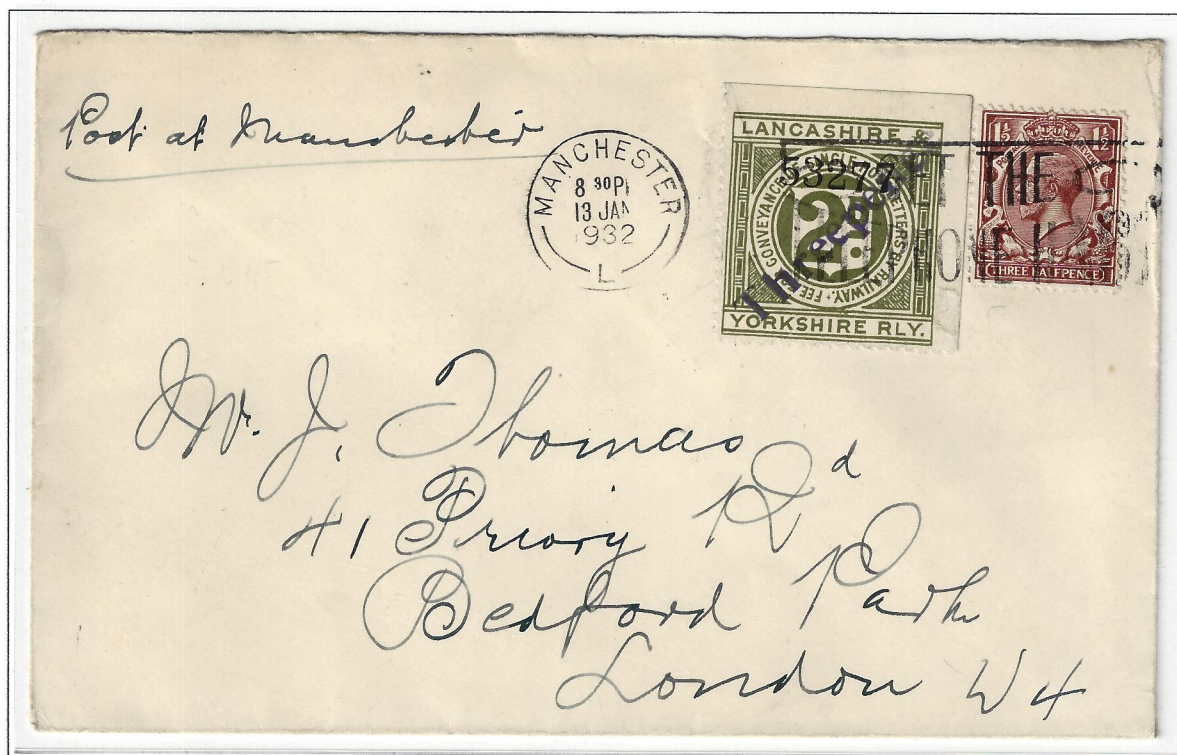 Post at Manchester
MANCHESTER
8 30 PM
13 JAN
1932
L
LANCASHIRE &
53277
CONVEYANCE OF SINGLE POST LETTERS BY RAILWAY. FEE
2D.
Threepence
YORKSHIRE RLY.
1½ 1½
POSTAGE REVENUE
THREE HALFPENCE
GET THE
TELEPHONE HABIT
Mr. J. Thomas
41 Priory Rd
Bedford Park
London W4